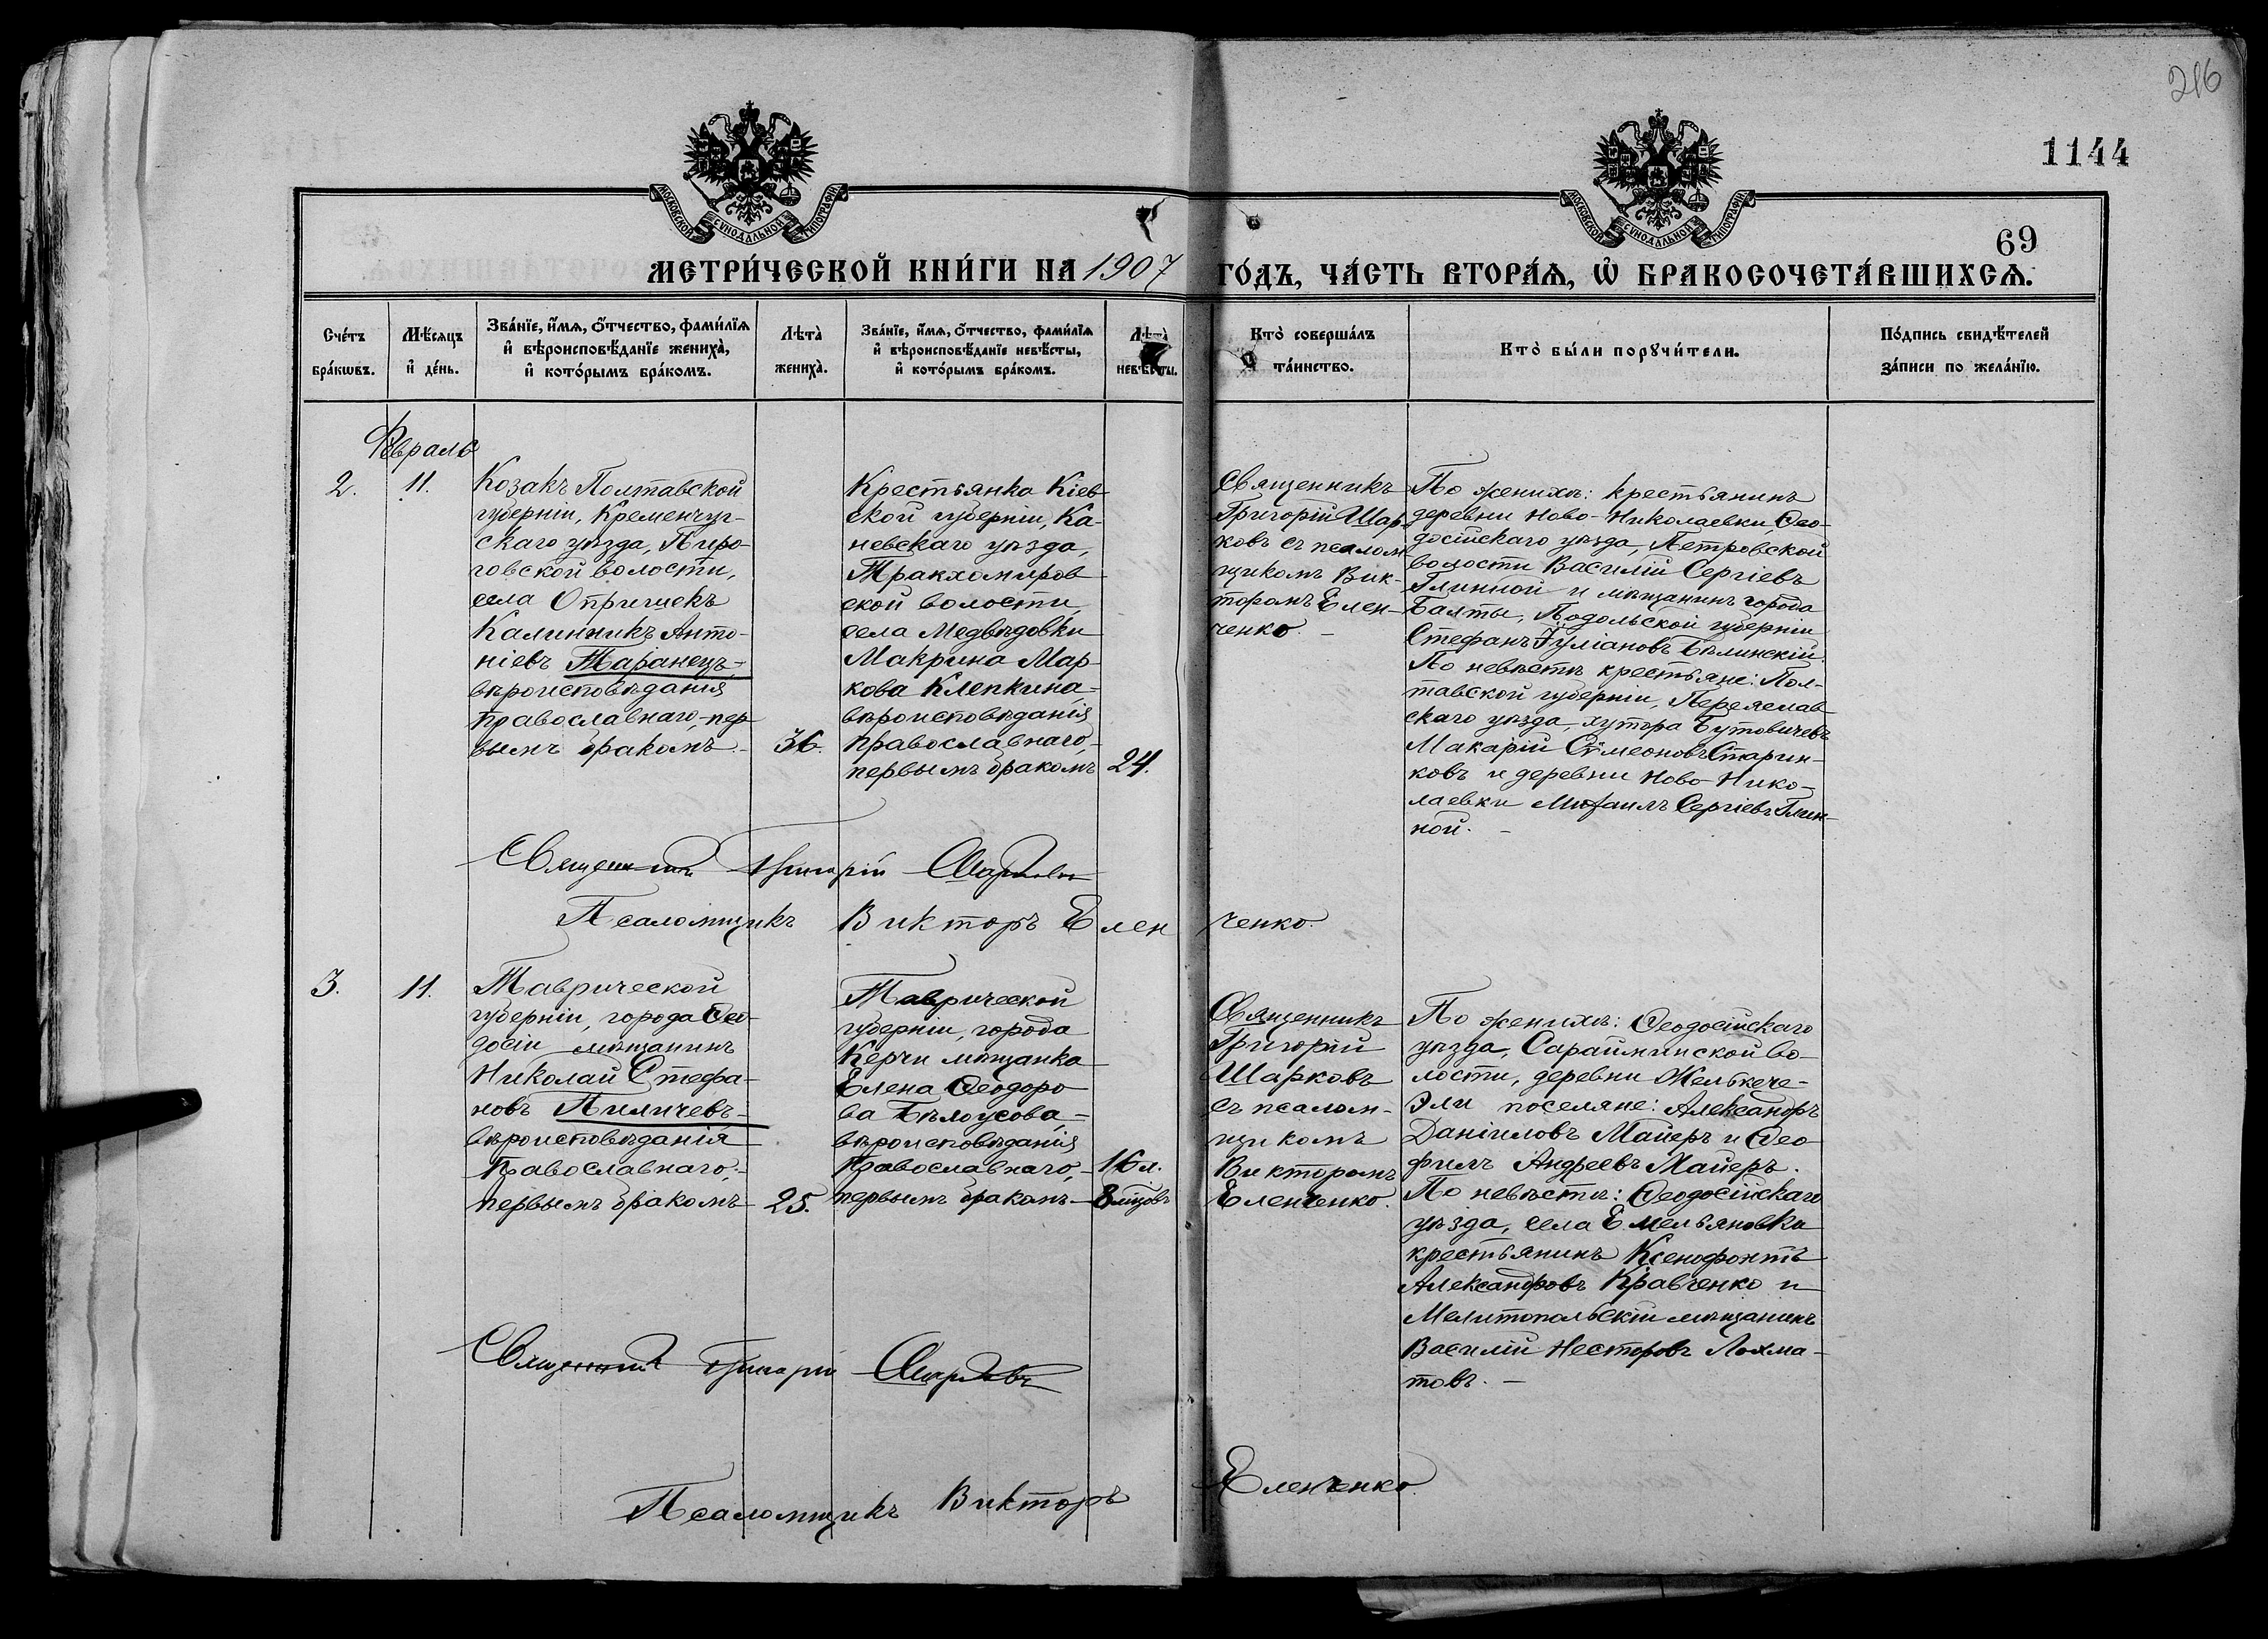 216
1144
69
МОСКОВСКОЙ СѴНОДАЛЬНОЙ ТИПОГРАФІИ
МОСКОВСКОЙ СѴНОДАЛЬНОЙ ТИПОГРАФІИ
МЕТРИ́ЧЕСКОЙ КНИ́ГИ НА 1907 ГО́ДЪ, ЧА́СТЬ ВТОРА́Ѧ, Ѡ҆ БРАКОСОЧЕТА́ВШИХСѦ.
Сче́тъ
бра́кѡвъ.
Мѣ́сяцъ
и҆ де́нь.
Зва́нїе, и҆́мѧ, ѻ҆́тчество, фами́лїѧ
и҆ вѣроисповѣ́данїе жениха̀,
и҆ кото́рымъ бра́комъ.
Лѣта̀
жениха̀.
Зва́нїе, и҆́мѧ, ѻ҆́тчество, фами́лїѧ
и҆ вѣроисповѣ́данїе невѣ́сты,
и҆ кото́рымъ бра́комъ.
Лѣта̀
невѣ́сты.
Кто̀ соверша́лъ
та́инство.
Кто̀ бы́ли порꙋчи́тели.
По́дпись свидѣ́телей
за́писи по жела́нїю.
Февраль
2.
11.
Козакъ Полтавской
губерніи, Кременчуг-
скаго уѣзда, Пиро-
говской волости,
села Опришекъ
Калинникъ Анто-
ніевъ Таранецъ,-
вѣроисповѣданія
православнаго,-пер-
вымъ бракомъ-
36.
Крестьянка Кіев-
ской губерніи, Ка-
невскаго уѣзда,
Тракхомиров-
ской волости,
села Медвѣдовки
Макрина Мар-
кова Клепкина,-
вѣроисповѣданія
православнаго,-
первымъ бракомъ
24.
Священникъ
Григорій Шар-
ковъ съ псалом-
щикомъ Вик-
торомъ Елен-
ченко. -
По женихѣ: крестьянинъ
деревни Ново-Николаевки, Ѳео-
досійскаго уѣзда, Петровской
волости Василій Сергіевъ
Глинной и мѣщанинъ города
Балты, Подольской губерніи
Стефанъ Іуліановъ Бѣлинскій.
По невѣстѣ крестьяне: Пол-
тавской губерніи, Переяслав-
скаго уѣзда, хутора Бутовичевъ
Макарій Сѵмеоновъ Старин-
ковъ и деревни Ново-Нико-
лаевки Михаилъ Сергіевъ Глин-
ной. -
Священникъ Григорій Шарковъ
Псаломщикъ Викторъ Еленченко.
3.
11.
Таврической
губерніи, города Ѳео-
досіи мѣщанинъ
Николай Стефа-
новъ Пиличевъ-
вѣроисповѣданія
православнаго,-
первымъ бракомъ-
25.
Таврической
губерніи, города
Керчи мѣщанка
Елена Ѳеодоро-
ва Бѣлоусова,-
вѣроисповѣданія
православнаго,-
первымъ бракомъ-
16 л.
8 мѣсцовъ
Священникъ
Григорій
Шарковъ
съ псалом-
щикомъ
Викторомъ
Еленченко.
По женихѣ: Ѳеодосійскаго
уѣзда, Сарайминской во-
лости, деревни Желькече-
Эли поселяне: Александръ
Даніиловъ Майеръ и Ѳео-
филъ Андреевъ Майеръ.
По невѣстѣ: Ѳеодосійскаго
уѣзда, села Емельяновка
крестьянинъ Ксенофонтъ
Александровъ Кравченко и
Мелитопольскій мѣщанинъ
Василій Несторовъ Лохма-
товъ. -
Священникъ Григорій Шарковъ
Псаломщикъ Викторъ Еленченко